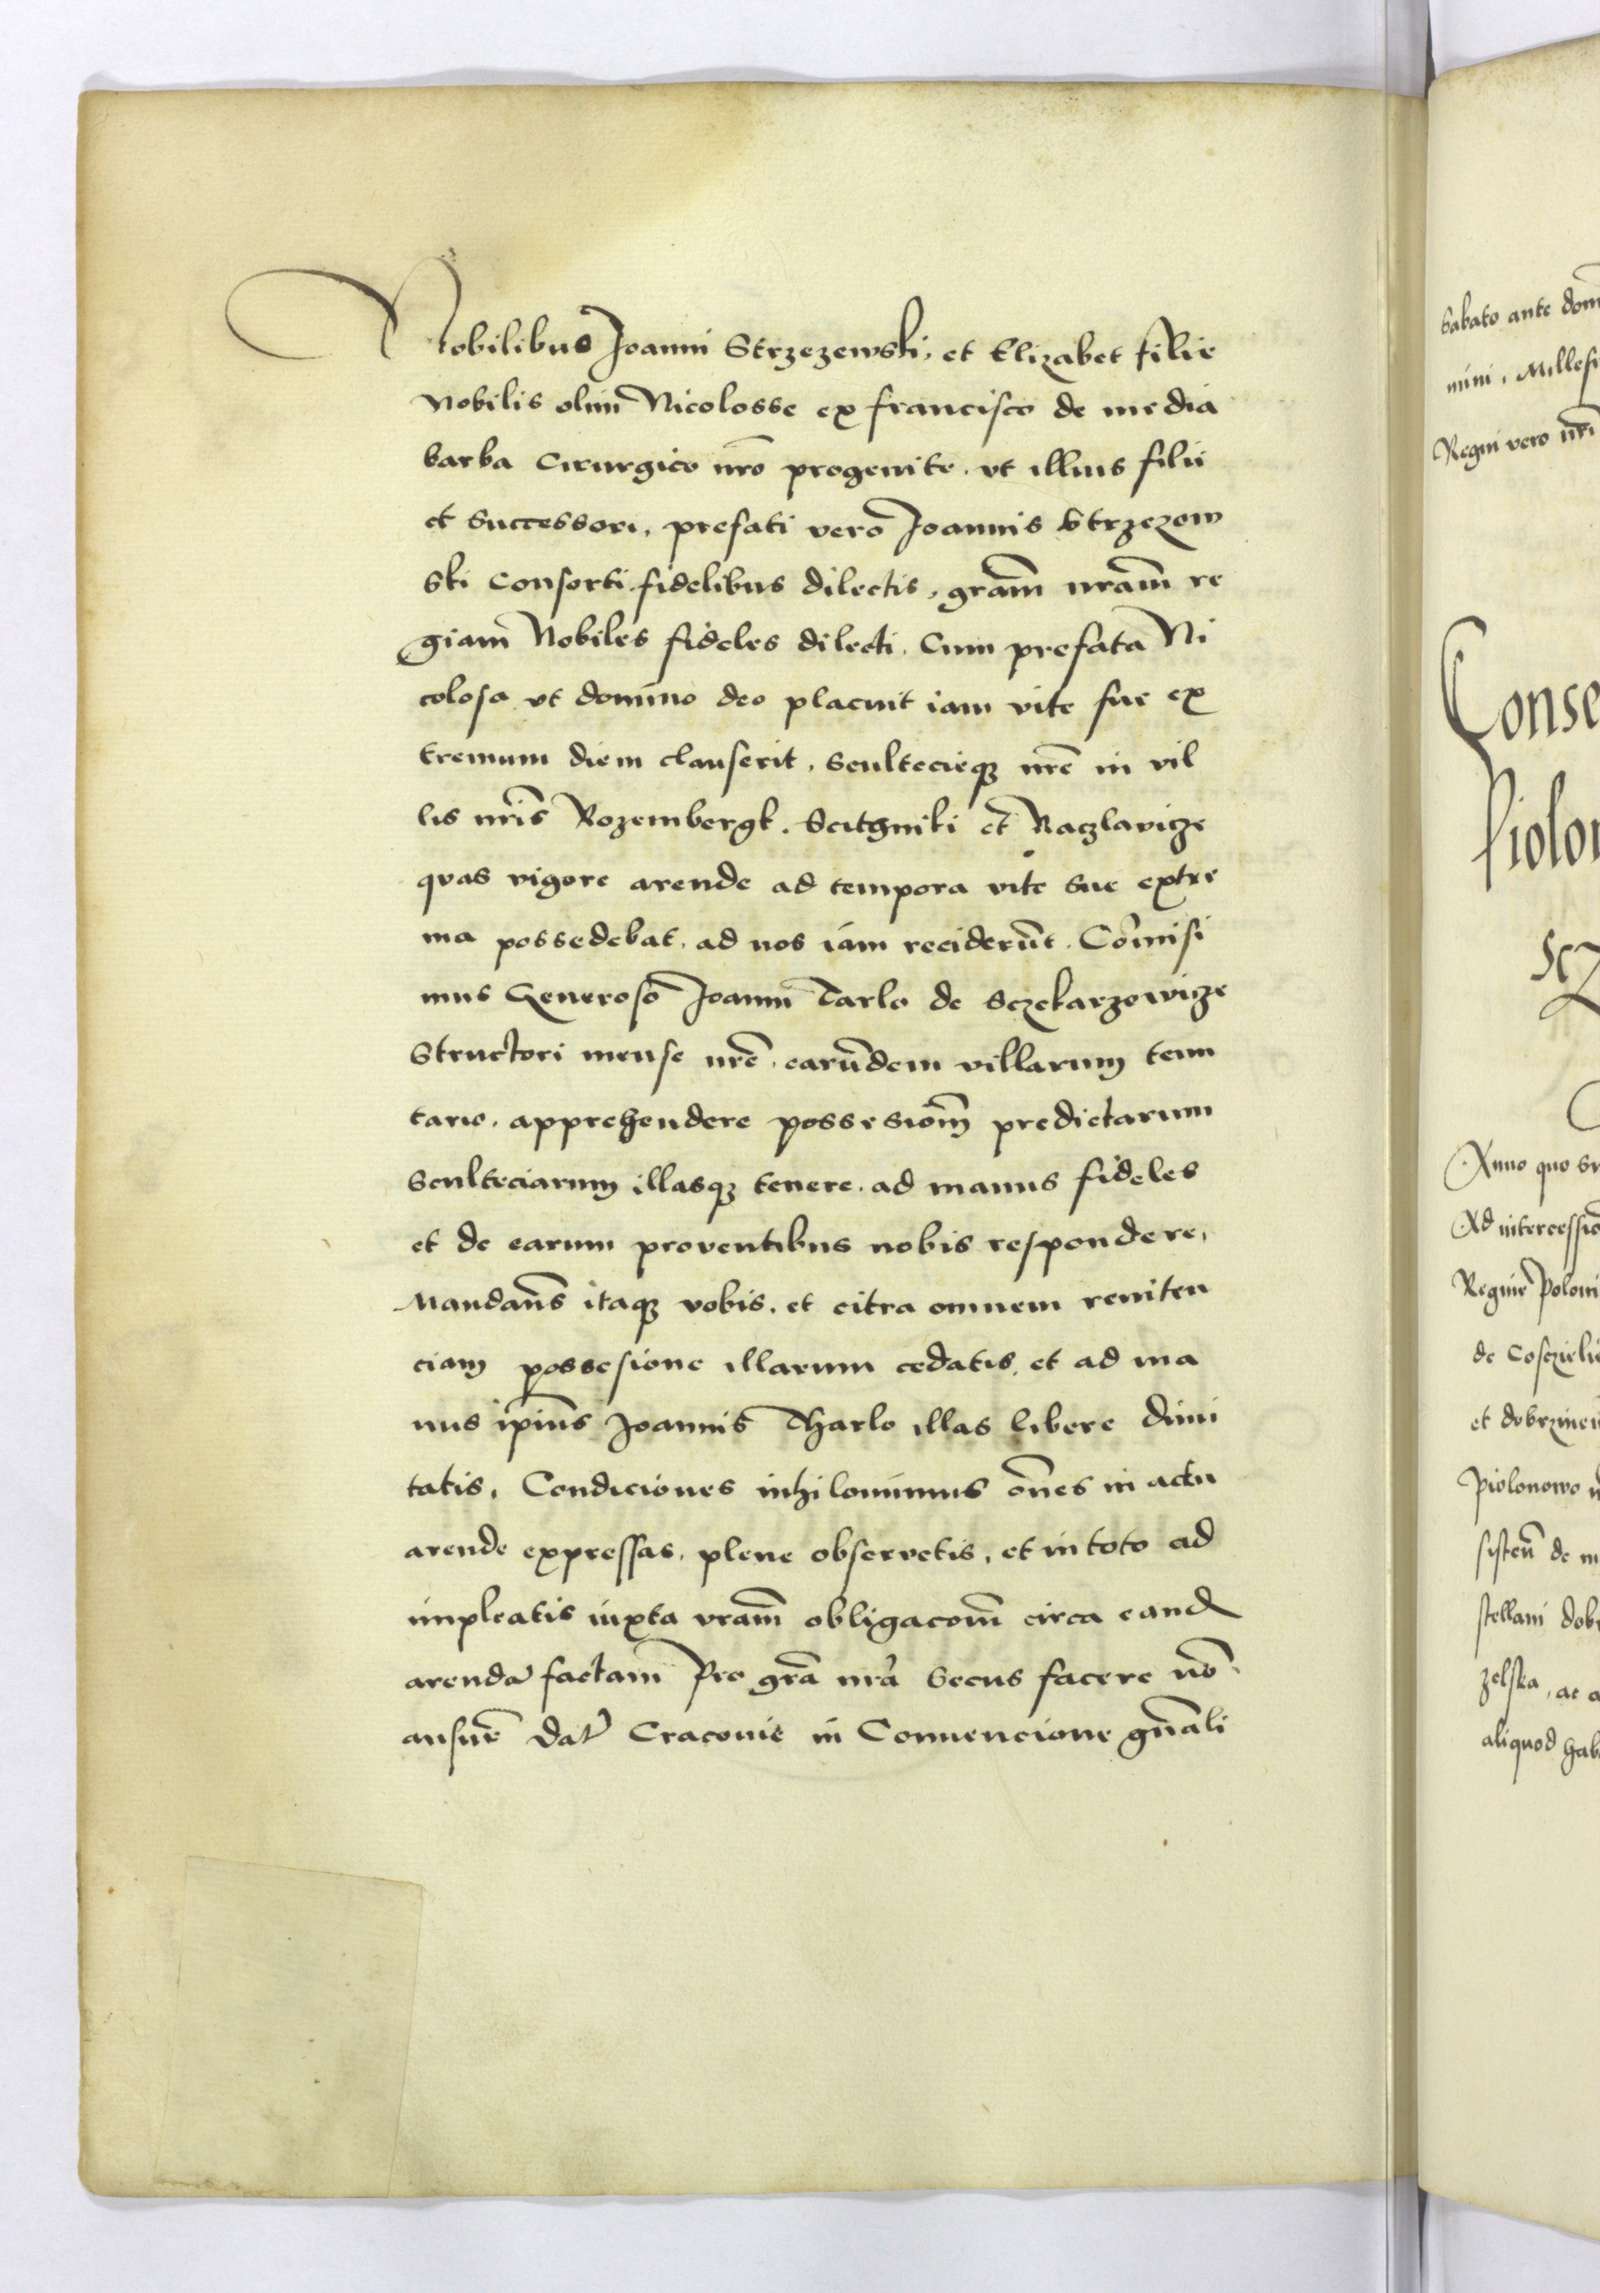 Nobilibus Joanni Strzezewski, et Elizabet filie
Nobilis olim Nicolosse ex francisco de media
barba Cirurgico nr̃o progenite. vt illius filii
et Successori, prefati vero Joannis Strzezow
ski Consorti fidelibus dilectis, gr̃am nr̃am re
giam Nobiles fideles dilecti. Cum prefata Ni
colosa vt domino deo placuit iam vite sue ex
tremum diem clauserit, scultecieqꝫ nr̃e in vil
lis nr̃is Rozembergk. Scitgniki et Raczlavicze
qvas vigore arende ad tempora vite sue extre
ma possedebat. ad nos iam reciderũt. Com̃isi
mus Generoso Joanni Tarlo de Sczekarzowicze
Structori mense nr̃e. earũdem villarum tenu
tario. apprehendere possesiom̃ predictarum
Sculteciarum illasqꝫ tenere. ad manus fideles
et de earum proventibus nobis respondere,
Mandañs itaqꝫ vobis. et citra omnem reniten
ciam possesione illarum cedatis. et ad ma
nus ip̃ius Joannis Tharlo illas libere dimi
tatis, Condiciones inhilominus om̃es in actu
arende expressas. plene observetis, et in toto ad
impleatis iuxta vr̃am obligacom̃ circa eand
arendã factam Pro gr̃a nr̃a Secus facere nõ
ausur̃e Dat Cracovie in Convencione gñali
Sabato ante dom
mini, Millesi
Regni vero nr̃i
Conse
Piolon
Scz
Anno quo su
Ad intercessio
Regine Poloni
de Cosczielie
et dobrzinen
Piolonowo
sisteñ de m
stellani dobr
zelska, ac a
aliquod hab